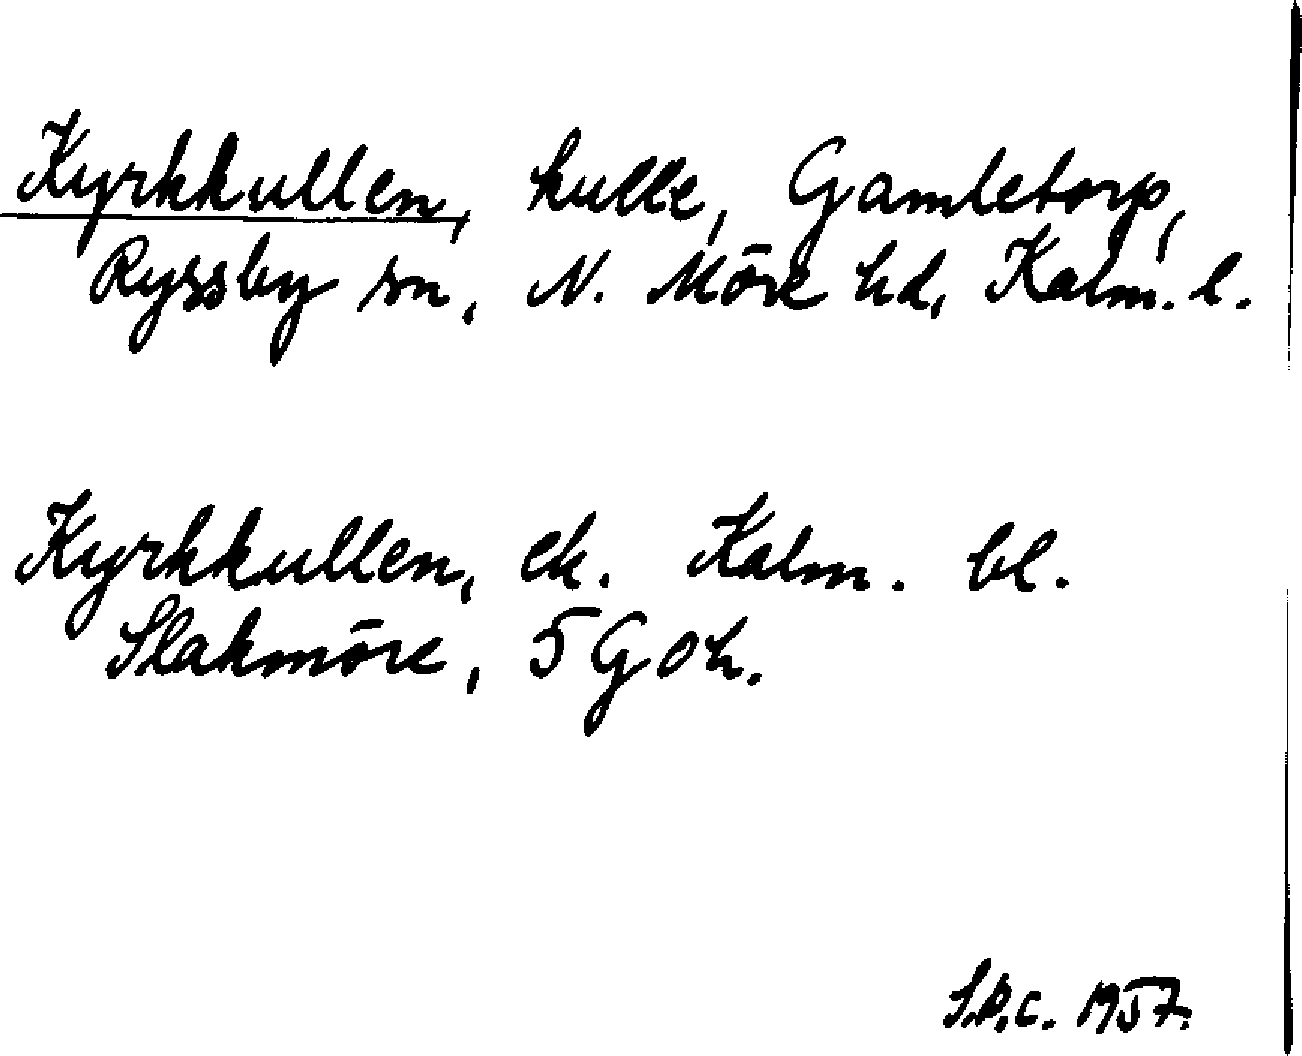 Kyrkkullen, kulle, Gamletorp,
Ryssby sn, N. Möre hd, Kalm. l.
Kyrkkullen, ek. Kalm. bl.
Slakmöre, 5G oh.
S.P.C. 1957.